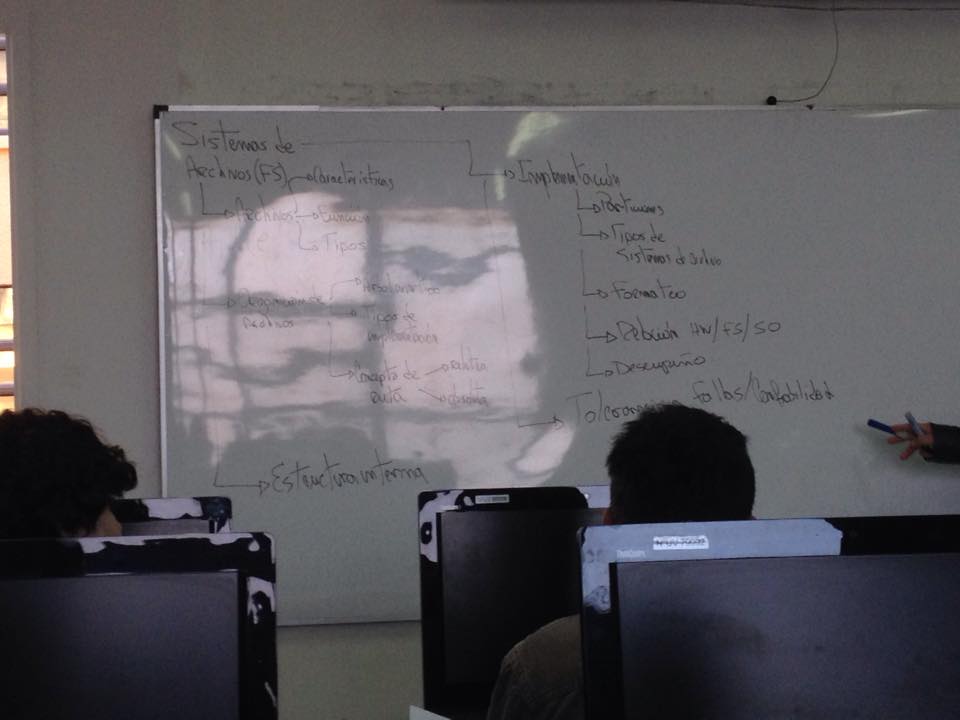 Sistemas de
Archivos (FS)
Características
Archivos
Función
Tipos
Organización de
Archivos
Tipos de
implementación
Concepto de
ruta
relativa
absoluta
Estructura interna
Implementación
Particiones
Tipos de
Sistemas de archivo
Formateo
Relación HW/FS/SO
Desempeño
Tolerancia
Fallos/Confiabilidad
ThinkCentre